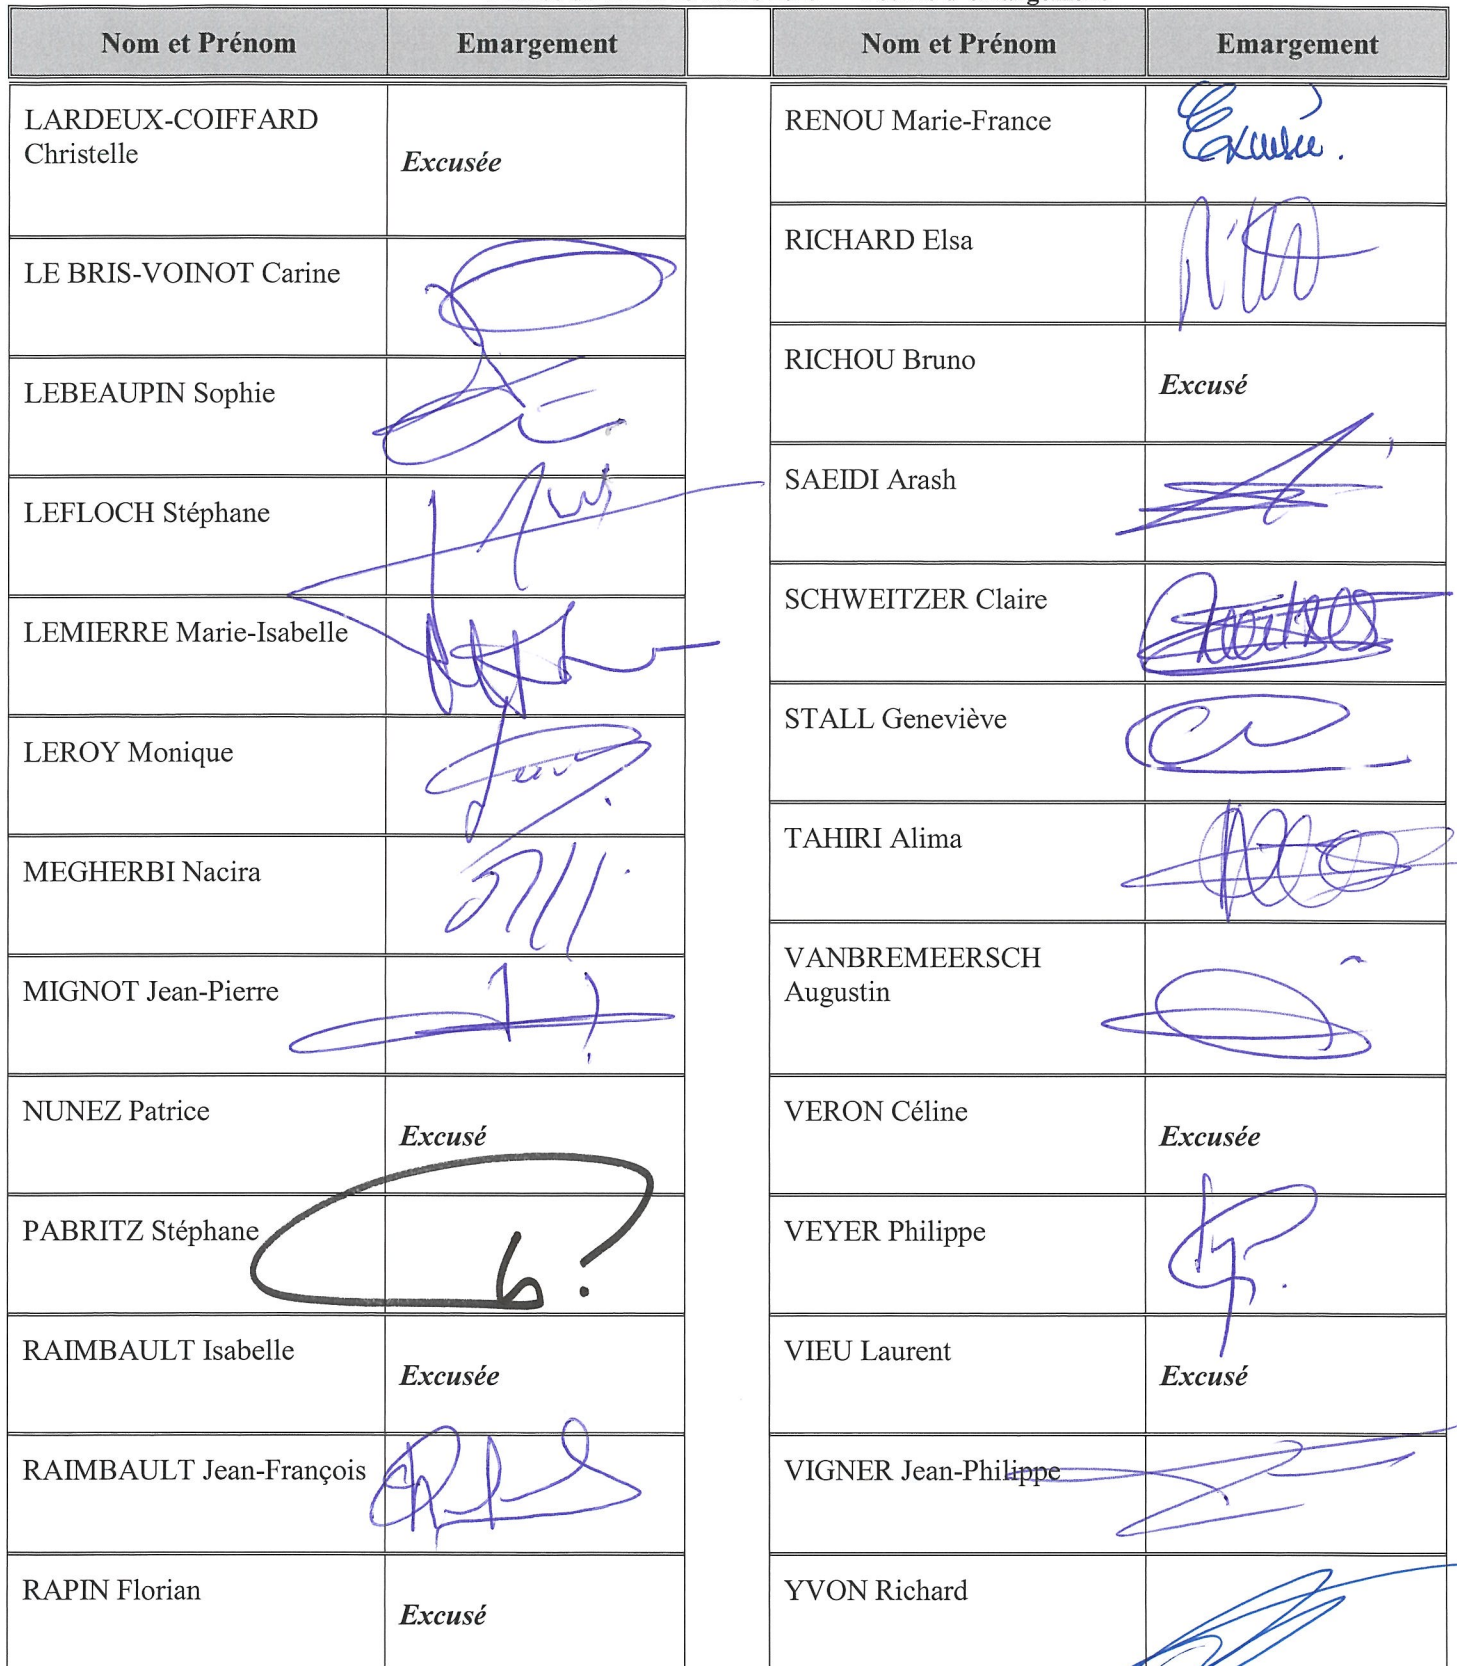 Nom et Prénom Emargement
LARDEUX-COIFFARD
Christelle
Excusée
LE BRIS-VOINOT Carine
LEBEAUPIN Sophie
LEFLOCH Stéphane
LEMIERRE Marie-Isabelle
LEROY Monique
MEGHERBI Nacira
MIGNOT Jean-Pierre
NUNEZ Patrice
Excusé
PABRITZ Stéphane
RAIMBAULT Isabelle
Excusée
RAIMBAULT Jean-François
RAPIN Florian
Excusé
Nom et Prénom Emargement
RENOU Marie-France
Excusée.
RICHARD Elsa
RICHOU Bruno
Excusé
SAEIDI Arash
SCHWEITZER Claire
STALL Geneviève
TAHIRI Alima
VANBREMEERSCH
Augustin
VERON Céline
Excusée
VEYER Philippe
VIEU Laurent
Excusé
VIGNER Jean-Philippe
YVON Richard